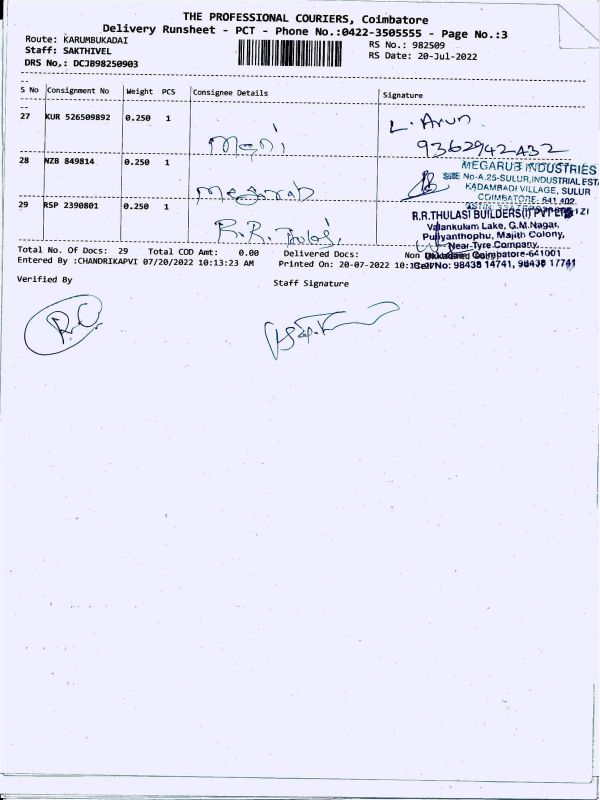 THE PROFESSIONAL COURIERS, Coimbatore
Delivery Runsheet - PCT - Phone No.:0422-3505555 - Page No.:3
Route: KARUMBUKADAI
RS No.: 982509
Staff: SAKTHIVEL
RS Date: 20-Jul-2022
DRS No,: DCJB98250903
S No Consignment No Weight PCS Consignee Details Signature
27 KUR 526509892 0.250 1
Mani
L. Arun
9362942432
28 NZB 849814 0.250 1
Megarub
MEGARUB INDUSTRIES
No-A.25-SULUR,INDUSTRIAL ESTA
KADAMBADI VILLAGE, SULUR
COIMBATORE- 641 402.
29 RSP 2390801 0.250 1
R.R. Thulasi
R.R.THULASI BUILDERS(I) PVT LTD
Valankulam Lake, G.M.Nagar,
Puliyanthophu, Majith Colony,
Near Tyre Company,
Coimbatore-641001
Cell No: 98438 14741, 98438 17741
Total No. Of Docs: 29 Total COD Amt: 0.00 Delivered Docs: Non
Entered By :CHANDRIKAPVI 07/20/2022 10:13:23 AM Printed On: 20-07-2022
Verified By
Staff Signature